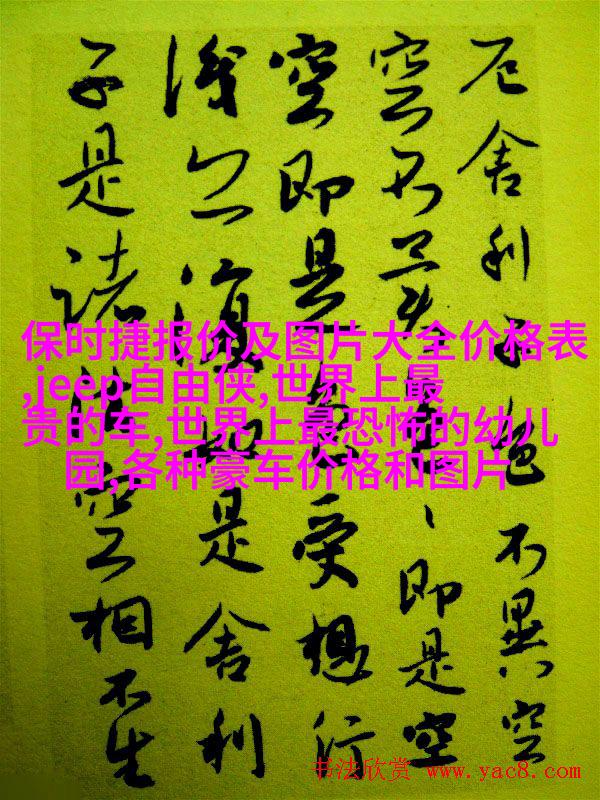 厄舍利子色不異空
空不異色、即是空
空即是色受想行
識亦復如是舍利
子是諸法空相不生
保时捷报价及图片大全价格表
,jeep自由侠,世界上最
贵的车,世界上最恐怖的幼儿
园,各种豪车价格和图片
书法欣赏 www.yac8.com